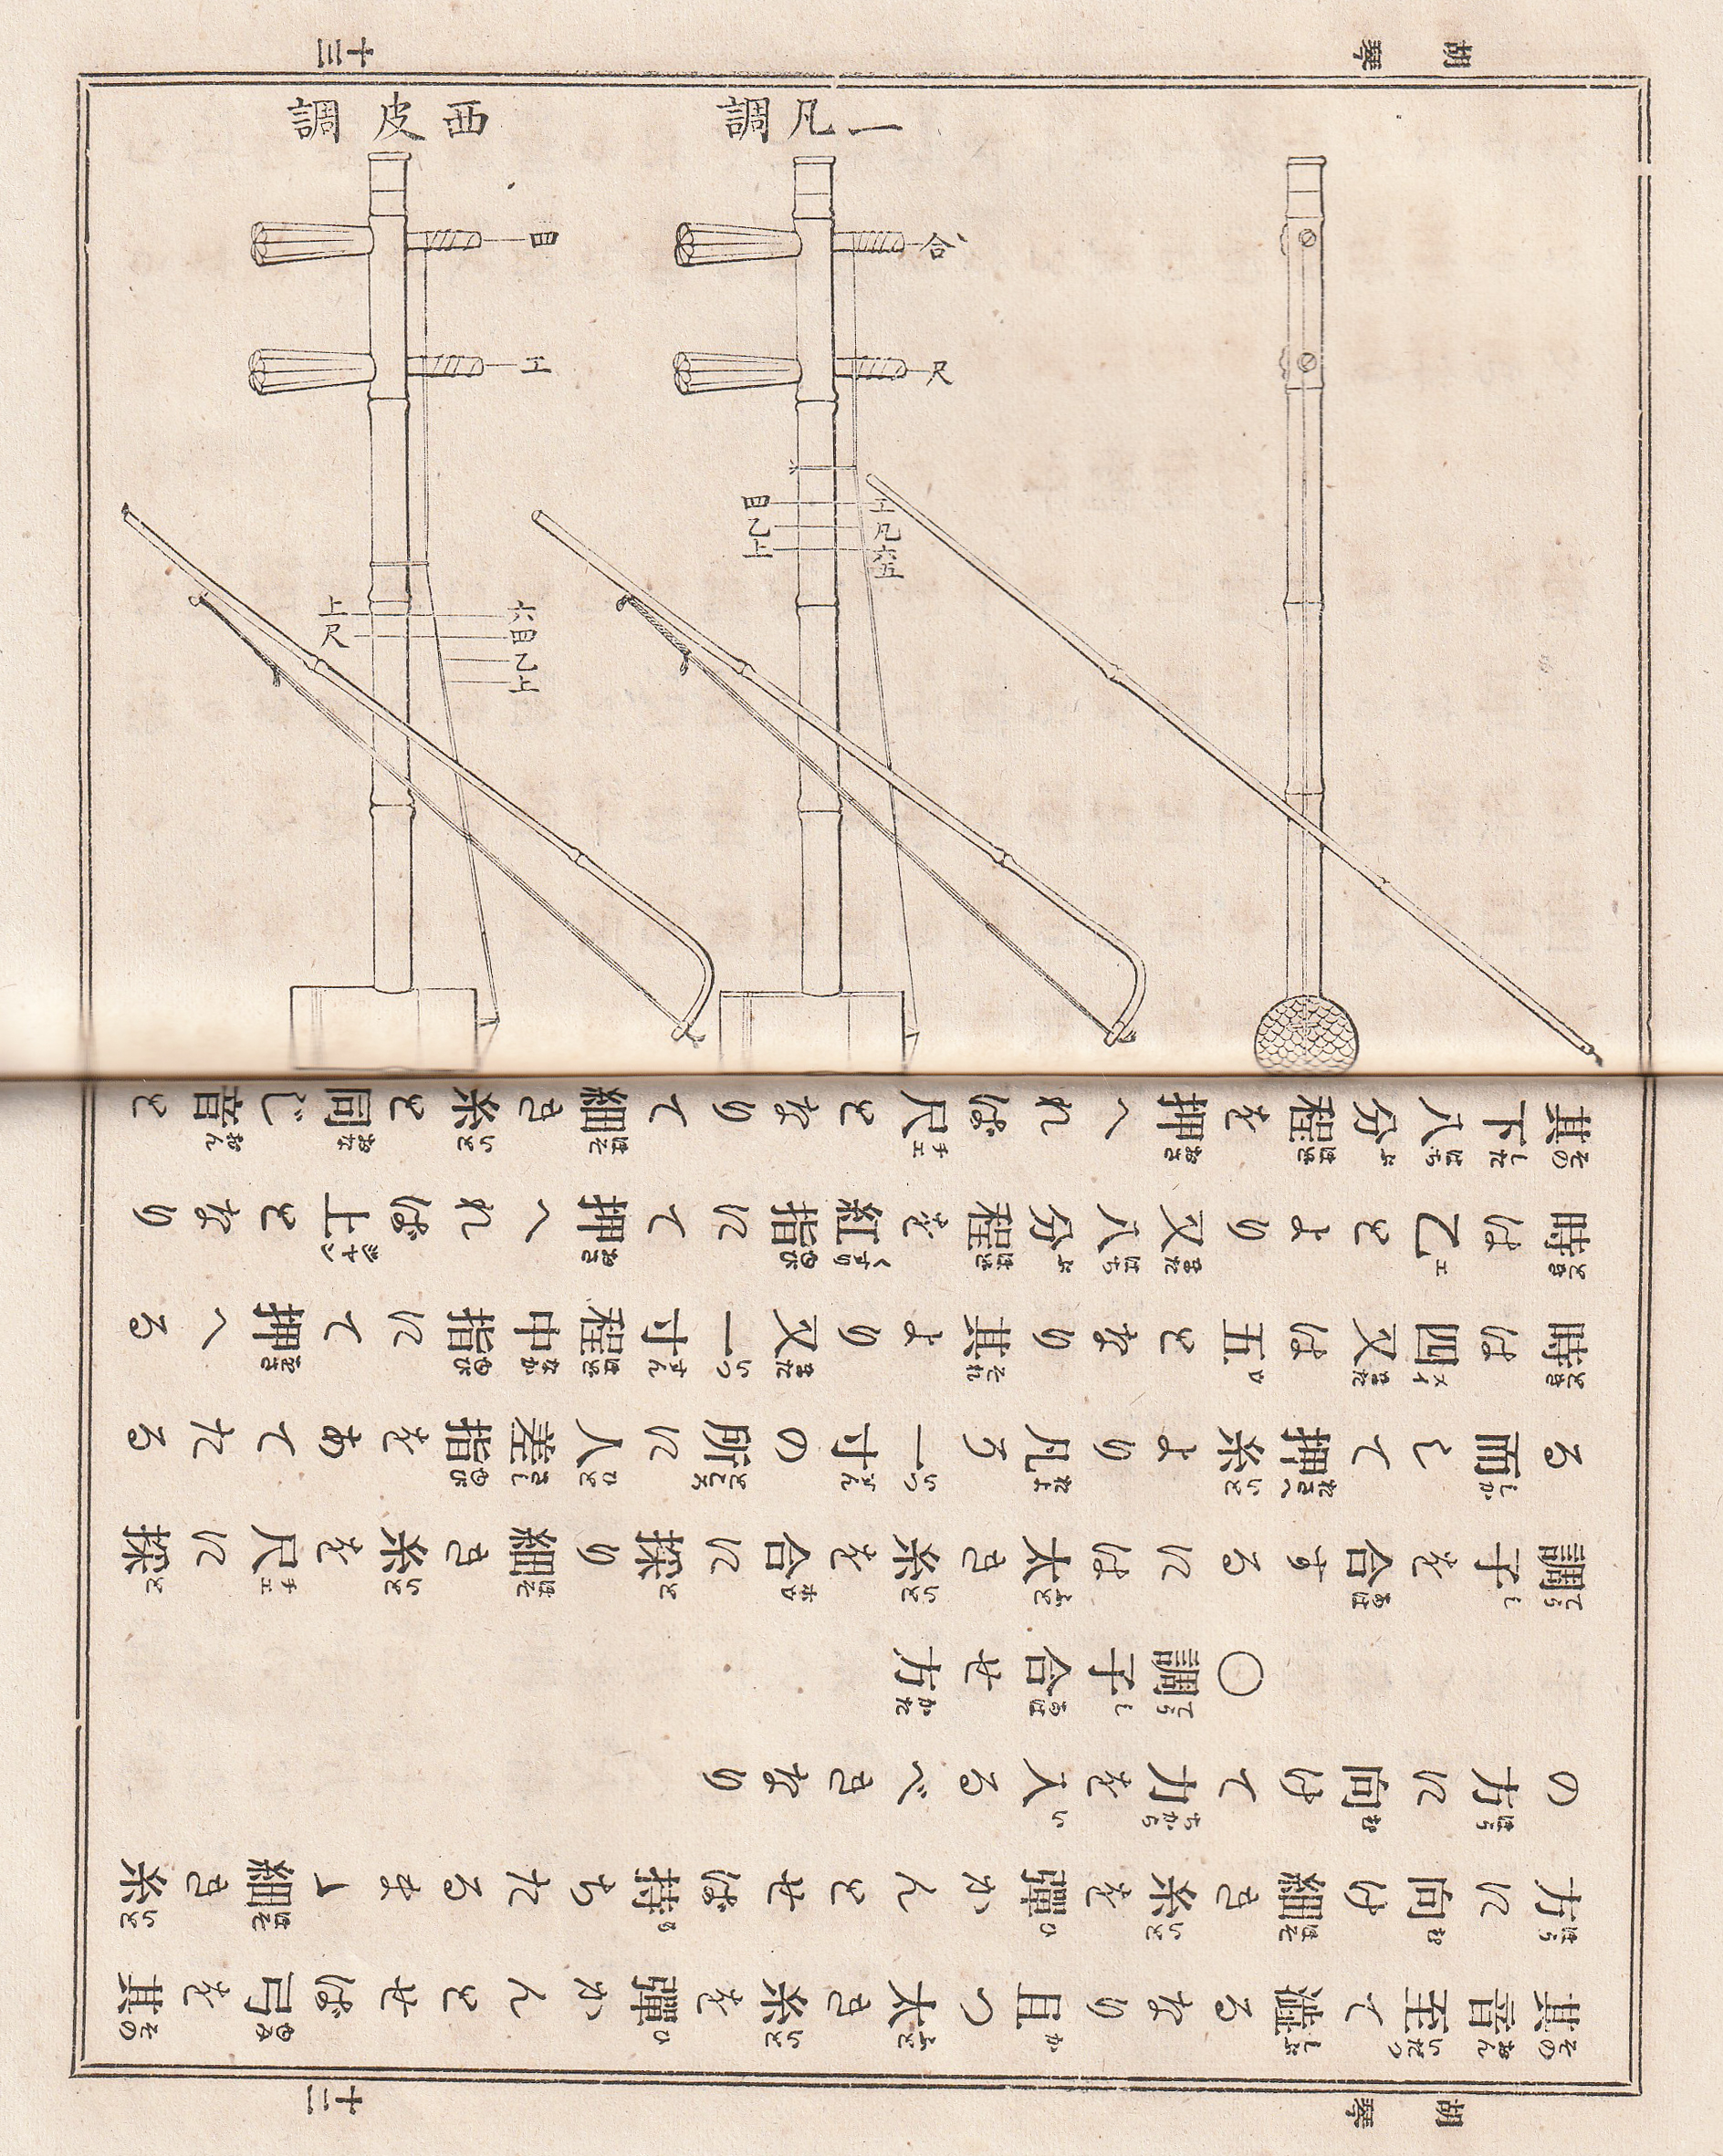 胡琴
十二
其音至て澁るなり且つ太き糸を彈かんとせば弓を其
方に向け細き糸を彈かんとせば持ちたるまゝ細き糸
の方に向けて力を入るべきなり
○調子合せ方
調子を合するには太き糸を合に採り細き糸を尺に採
る而して押糸より凡そ一寸の所に人差指をあてたる
時は四又は五となり其より又一寸程中指にて押へる
時は乙とより又八分程を紅指にて押へれば上となり
其下八分程を押へれば尺となりて細き糸と同じ音と
胡琴
十三
一凡調
合
尺
工
凡
六
五
四
乙
上
西皮調
四
工
六
四
乙
上
上
尺